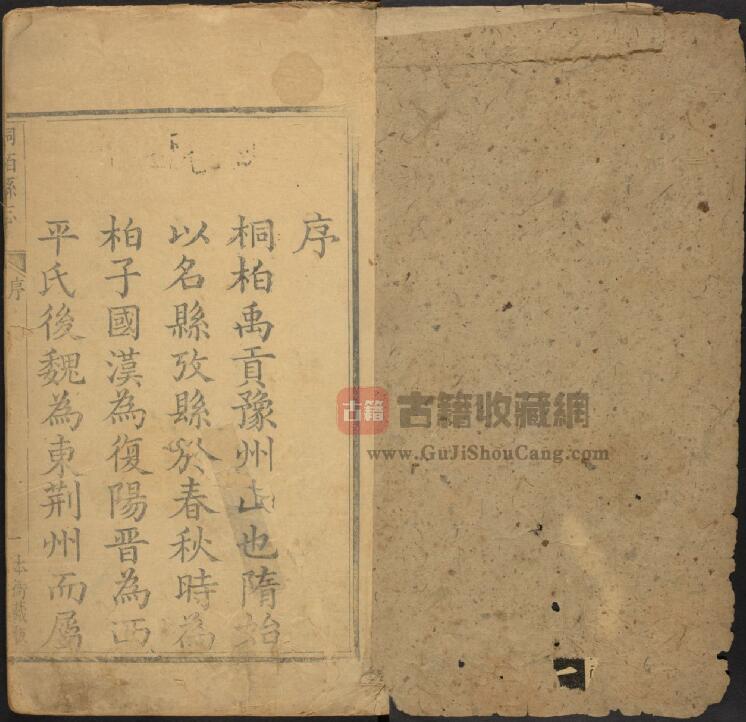 序
桐柏禹貢豫州山也隋始
以名縣攷縣於春秋時為
柏子國漢為復陽晋為西
平氏後魏為東荆州而屬
桐柏縣志
序
一
本衙藏板
古籍
古籍收藏網
www.GuJiShouCang.com
一